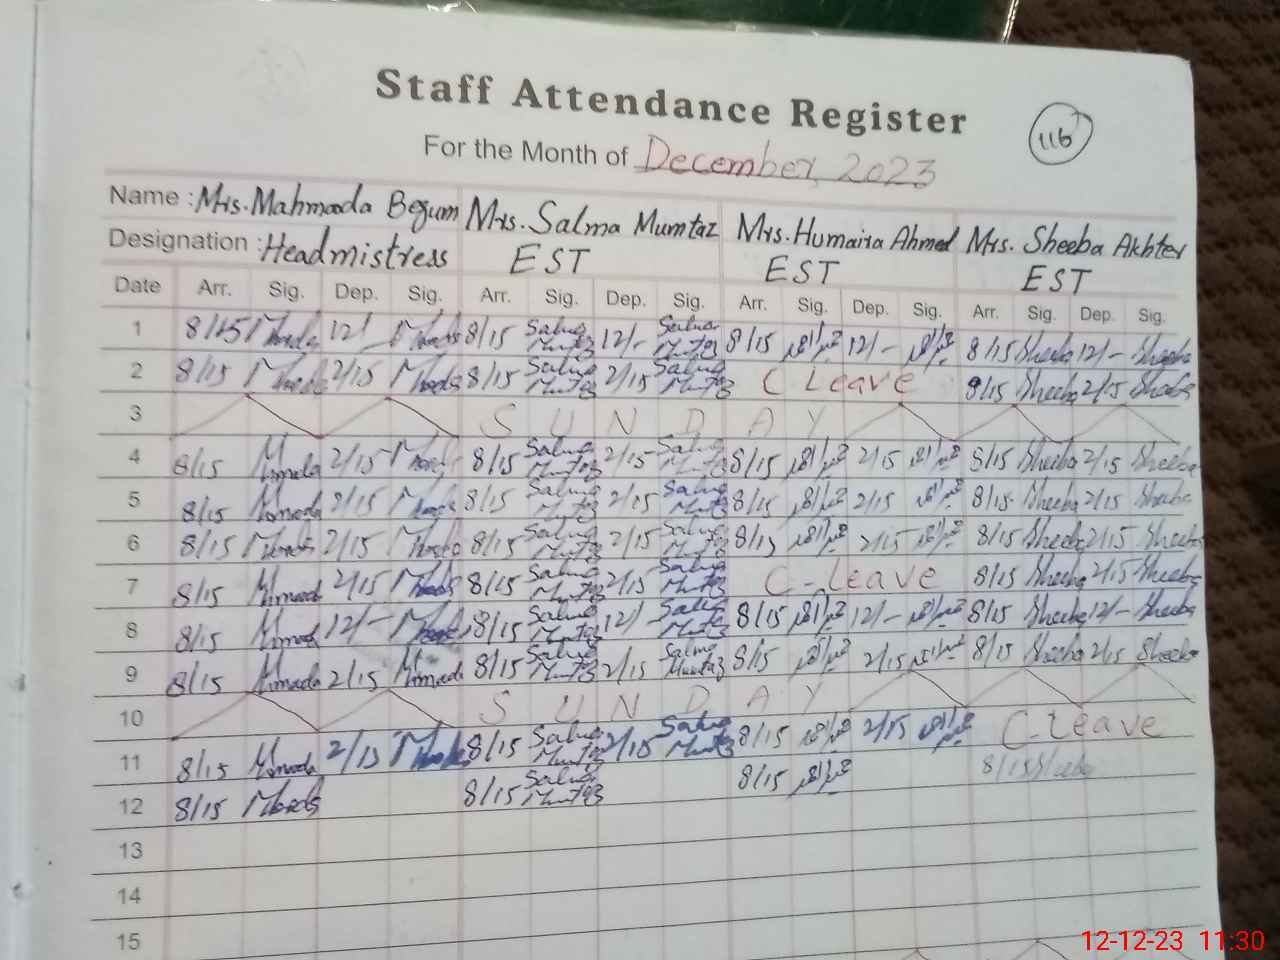 Staff Attendance Register
116
For the Month of December, 2023
Name : Mrs. Mahmada Begum Mrs. Salma Mumtaz Mrs. Humaira Ahmed Mrs. Sheeba Akhter
Designation : Headmistress EST EST EST
Date Arr. Sig. Dep. Sig. Arr. Sig. Dep. Sig. Arr. Sig. Dep. Sig. Arr. Sig. Dep. Sig.
1 8/15 12/- 8/15 Salma Mumtaz 12/- Salma Mumtaz 8/15 12/- 8/15 Sheeba 12/- Sheeba
2 8/15 2/15 8/15 Salma Mumtaz 2/15 Salma Mumtaz C Leave 8/15 Sheeba 2/15 Sheeba
3 SUNDAY
4 8/15 2/15 8/15 Salma Mumtaz 2/15 Salma Mumtaz 8/15 2/15 8/15 Sheeba 2/15 Sheeba
5 8/15 2/15 8/15 Salma Mumtaz 2/15 Salma Mumtaz 8/15 2/15 8/15 Sheeba 2/15 Sheeba
6 8/15 2/15 8/15 Salma Mumtaz 2/15 Salma Mumtaz 8/15 2/15 8/15 Sheeba 2/15 Sheeba
7 8/15 2/15 8/15 Salma Mumtaz 2/15 Salma Mumtaz C-Leave 8/15 Sheeba 2/15 Sheeba
8 8/15 12/- 8/15 Salma Mumtaz 12/- Salma Mumtaz 8/15 12/- 8/15 Sheeba 12/- Sheeba
9 8/15 2/15 8/15 Salma Mumtaz 2/15 Salma Mumtaz 8/15 2/15 8/15 Sheeba 2/15 Sheeba
10 SUNDAY
11 8/15 2/15 8/15 Salma Mumtaz 2/15 Salma Mumtaz 8/15 2/15 C-Leave
12 8/15 8/15 Salma Mumtaz 8/15 8/15 Sheeba
13
14
15
12-12-23 11:30